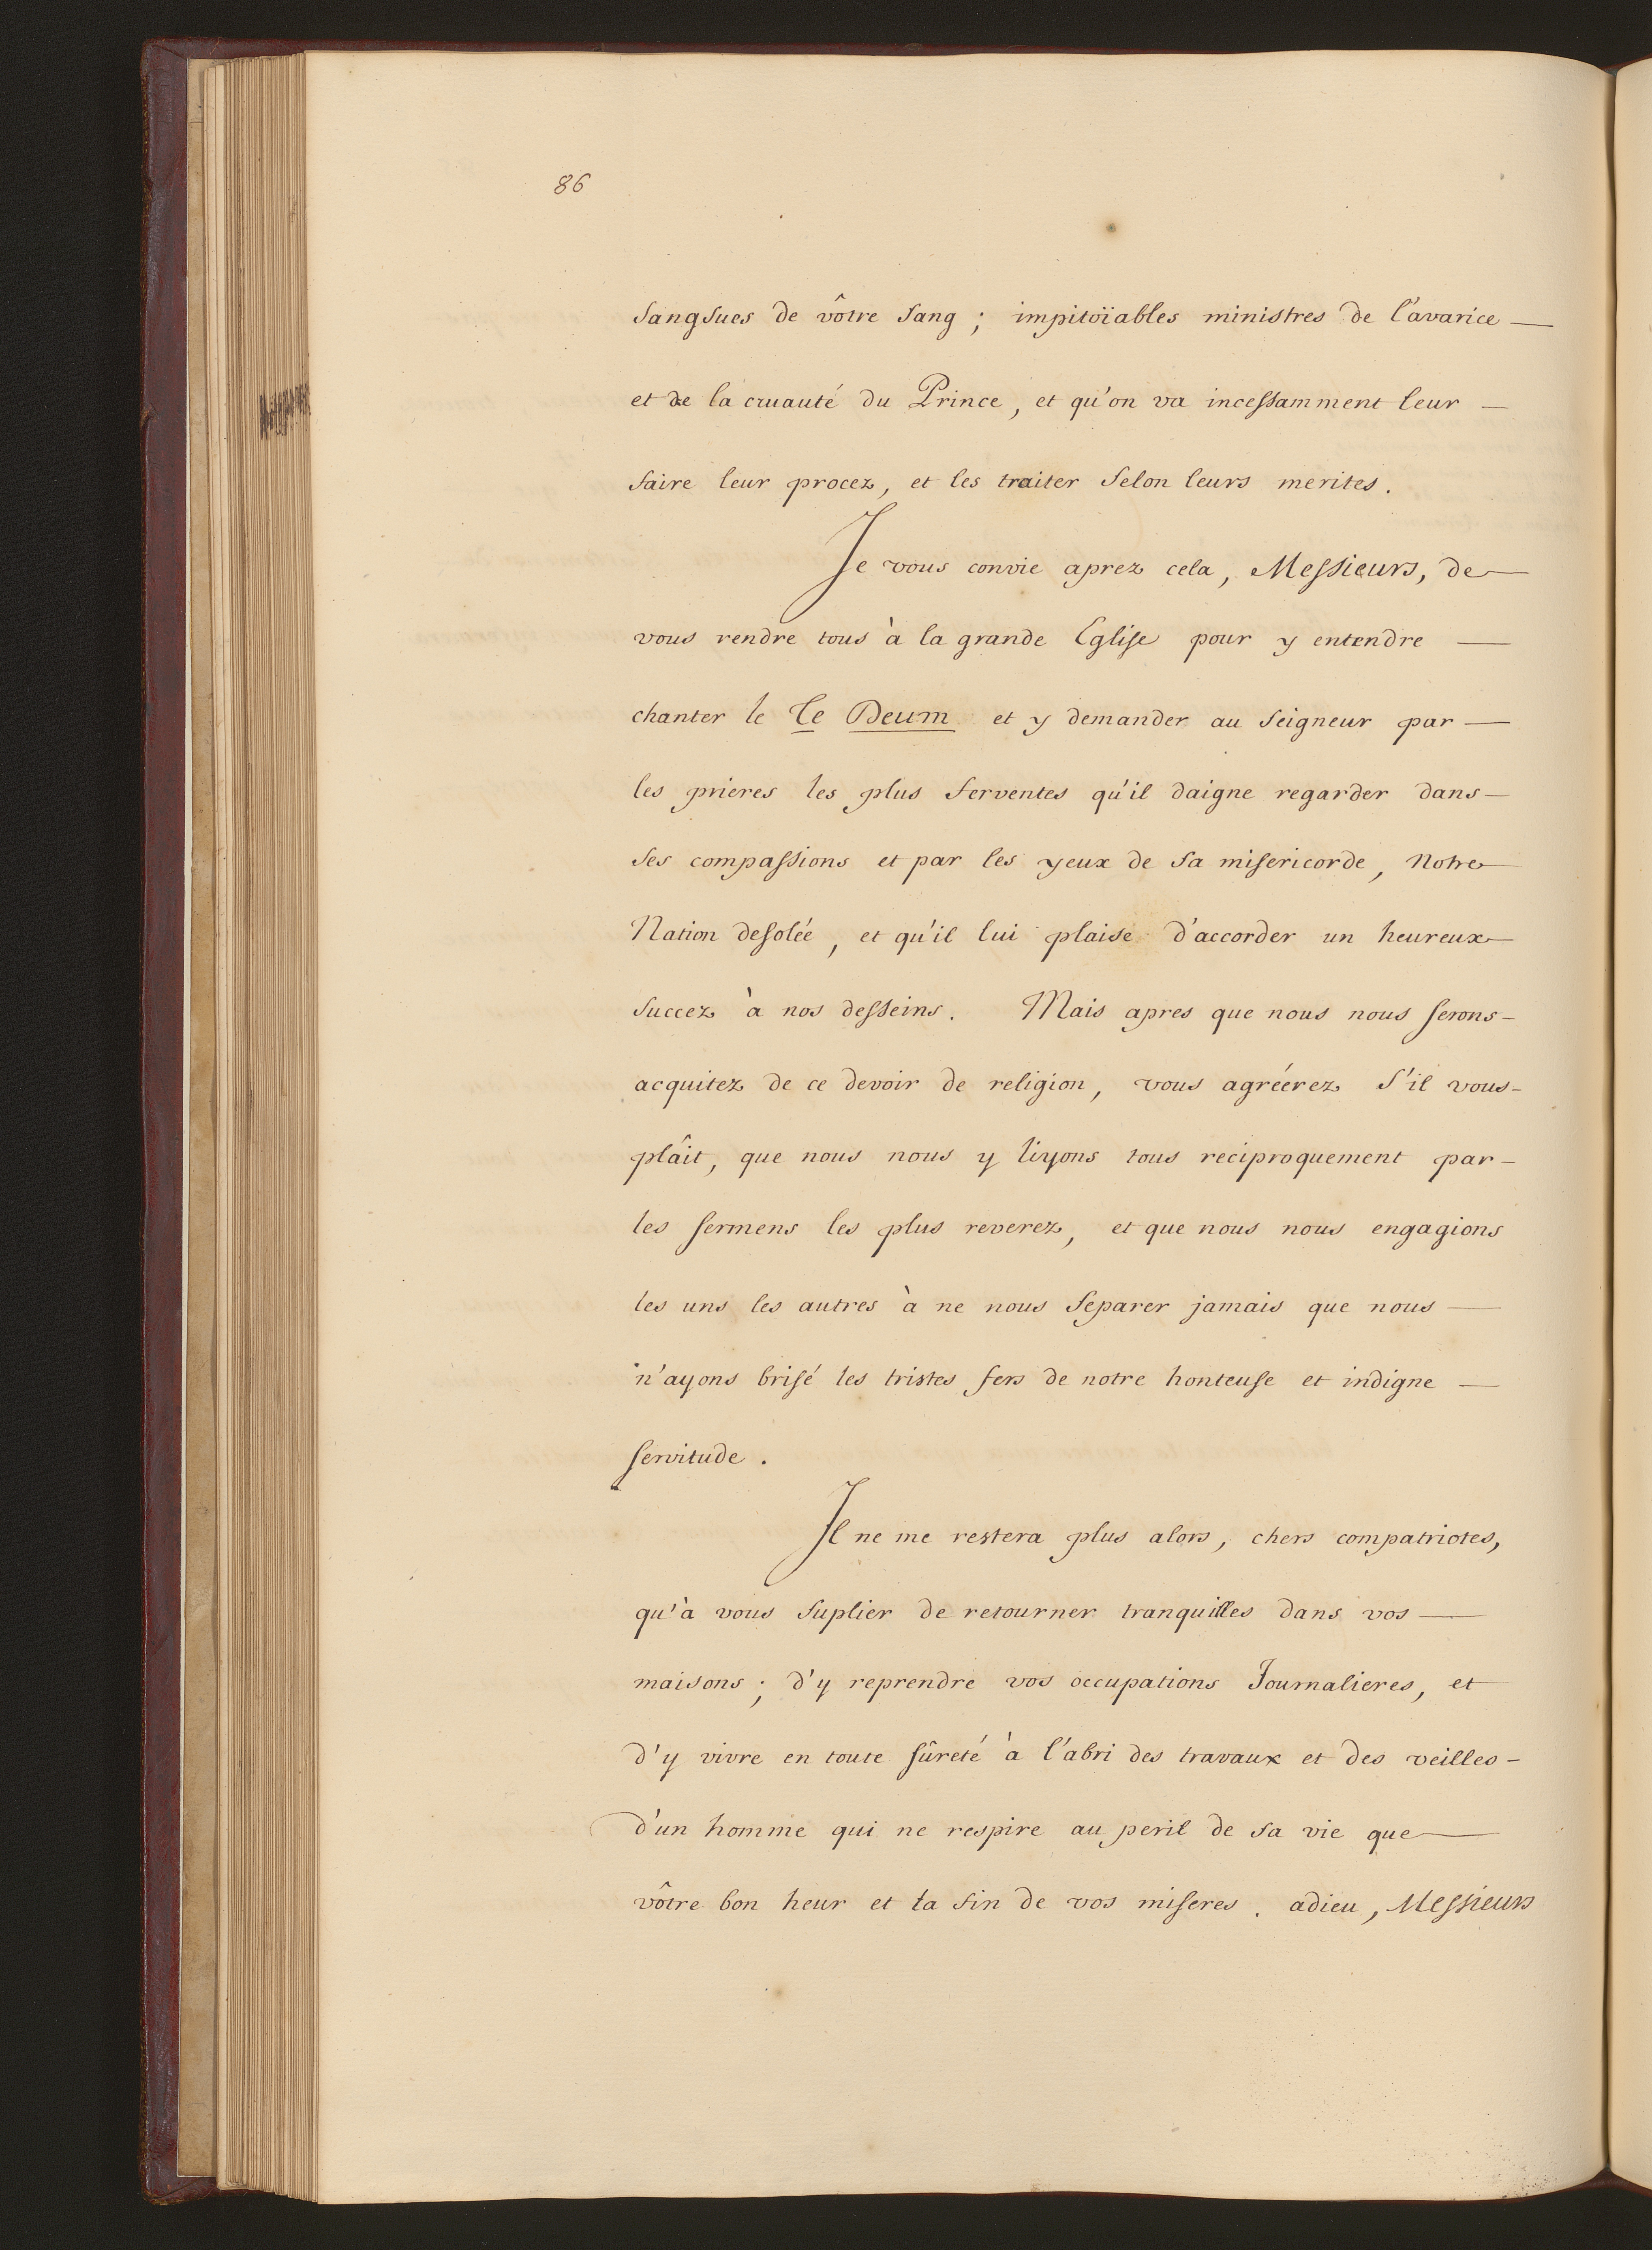 86
sangsues de vôtre sang ; impitoïables ministres de l'avarice —
et de la cruauté du Prince, et qu'on va incessamment leur —
faire leur procez, et les traiter selon leurs merites.
Je vous convie aprez cela, Messieurs, de —
vous rendre tous à la grande Eglise pour y entendre —
chanter le Te Deum et y demander au seigneur par —
les prieres les plus ferventes qu'il daigne regarder dans —
ses compassions et par les yeux de sa misericorde, Notre —
Nation desolée, et qu'il lui plaise d'accorder un heureux —
succez à nos desseins. Mais apres que nous nous serons -
acquitez de ce devoir de religion, vous agréérez s'il vous -
plâit, que nous nous y liyons tous reciproquement par -
les sermens les plus reverez, et que nous nous engagions
les uns les autres à ne nous separer jamais que nous —
n'ayons brisé les tristes fers de notre honteuse et indigne —
servitude.
Il ne me restera plus alors, chers compatriotes,
qu'à vous suplier de retourner tranquilles dans vos —
maisons ; d'y reprendre vos occupations Journalieres, et
d'y vivre en toute sûreté à l'abri des travaux et des veilles -
d'un homme qui ne respire au peril de sa vie que —
vôtre bon heur et la fin de vos miseres. adieu, Messieurs